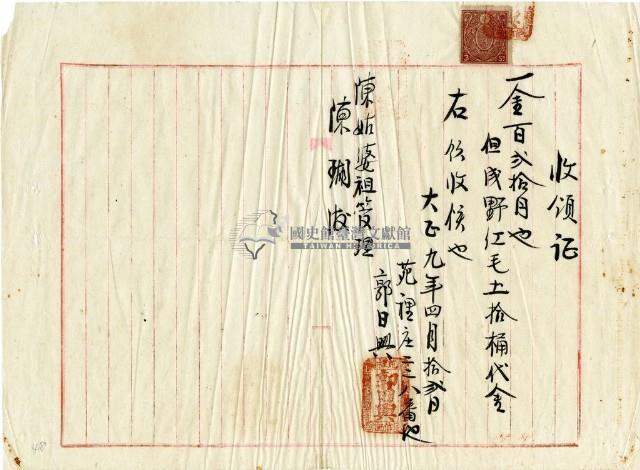 收領証
一金百貳拾円也
但浅野紅毛土拾桶代金
右领收候也
大正九年四月拾貳日
苑裡庄二三八番地
郭日興
陳姑婆祖管理
陳瑚
國史館臺灣文獻館
TAIWAN HISTORICA